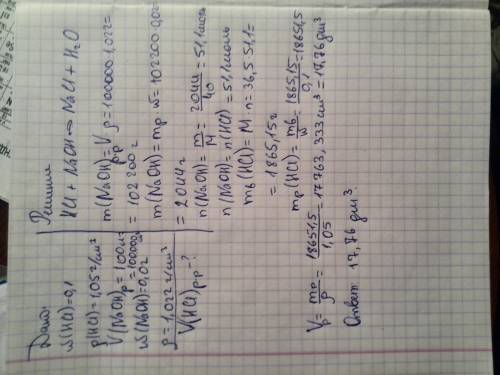 Дано:
w(HCl)=0,1
ρ(HCl)=1,05 г/см³
V(NaOH)р=100 л
=100000
w(NaOH)=0,02
ρ=1,022 г/см³
V(HCl)р-р-?
Решение
HCl + NaOH → NaCl + H₂O
m(NaOH)р-р=V ρ=100000·1,022=
=102200г
m(NaOH)=mр·w=102200·0,02
=2044г
n(NaOH)=m/M=2044/40=51,1моль
n(NaOH)=n(HCl)=51,1моль
mв(HCl)=M·n=36,5·51,1=
=1865,15г
mр(HCl)=mв/w=1865,15/0,1=18651,5
Vр=mр/ρ=18651,5/1,05=17763,333см³=17,76 дм³
Ответ: 17,76 дм³